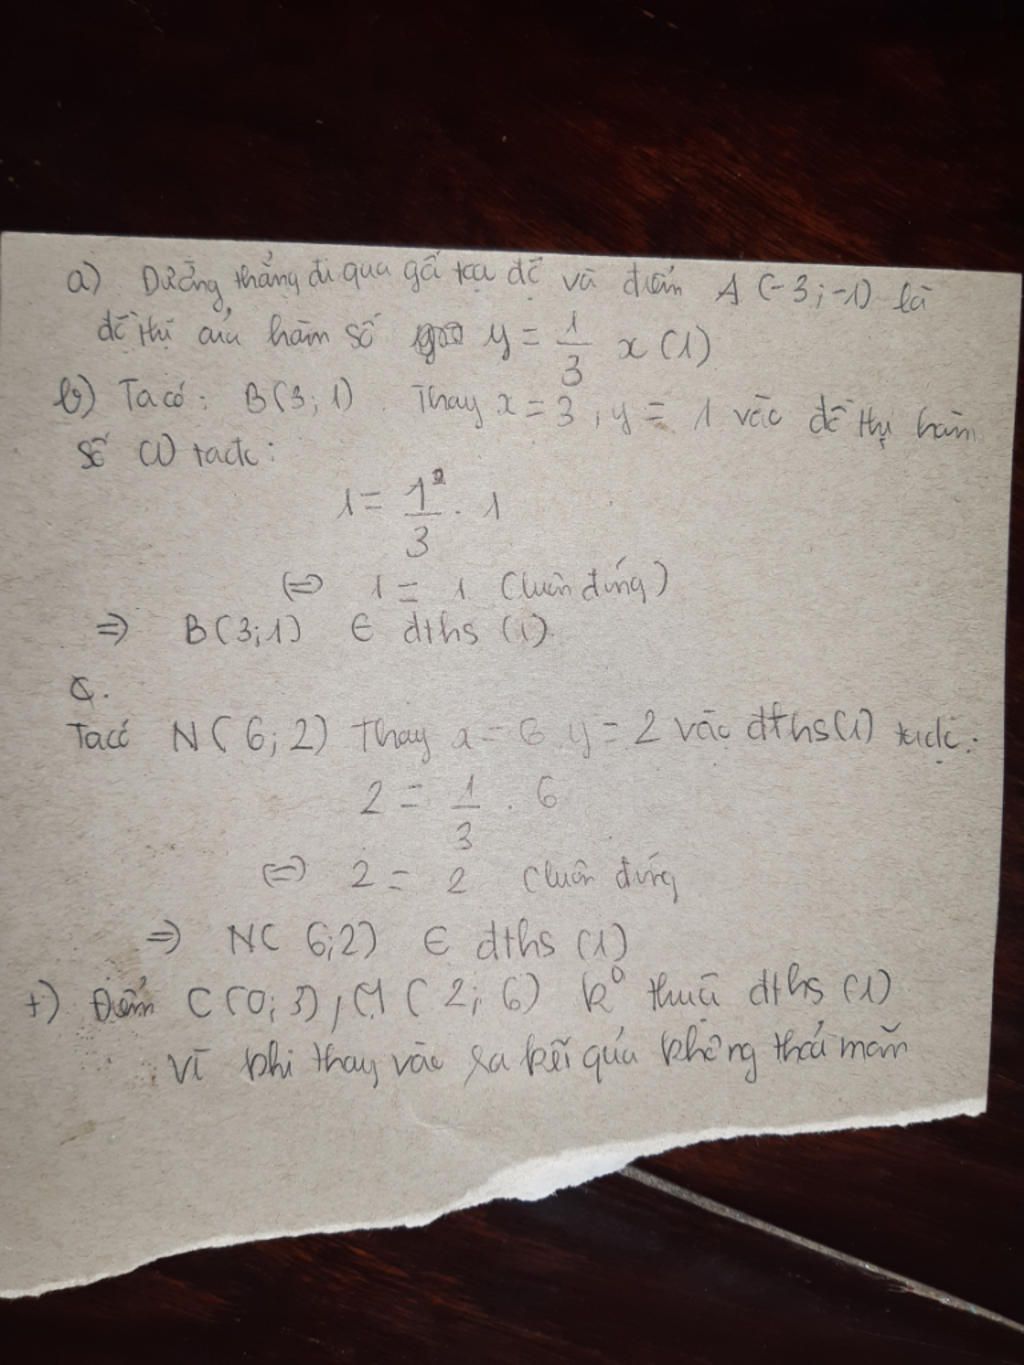 a) Đường thẳng đi qua gố tọa độ và điểm A (-3; -1) là
đồ thị của hàm số y = 1/3 x (1)
b) Ta có: B(3; 1). Thay x = 3, y = 1 vào đồ thị hàm
số (1) tađc:
1 = 1/3 . 1
(=) 1 = 1 (luôn đúng)
=> B(3;1) ∈ đths (1)
Q.
Ta có N(6; 2) Thay x = 6 y = 2 vào đths(1) tađc:
2 = 1/3 . 6
(=) 2 = 2 (luôn đúng
=> N( 6;2) ∈ đths (1)
+) Điểm C (0; 3), M ( 2; 6) k⁰ thuộ đths (1)
Vì khi thay vào ra kết quả không thỏa mãn